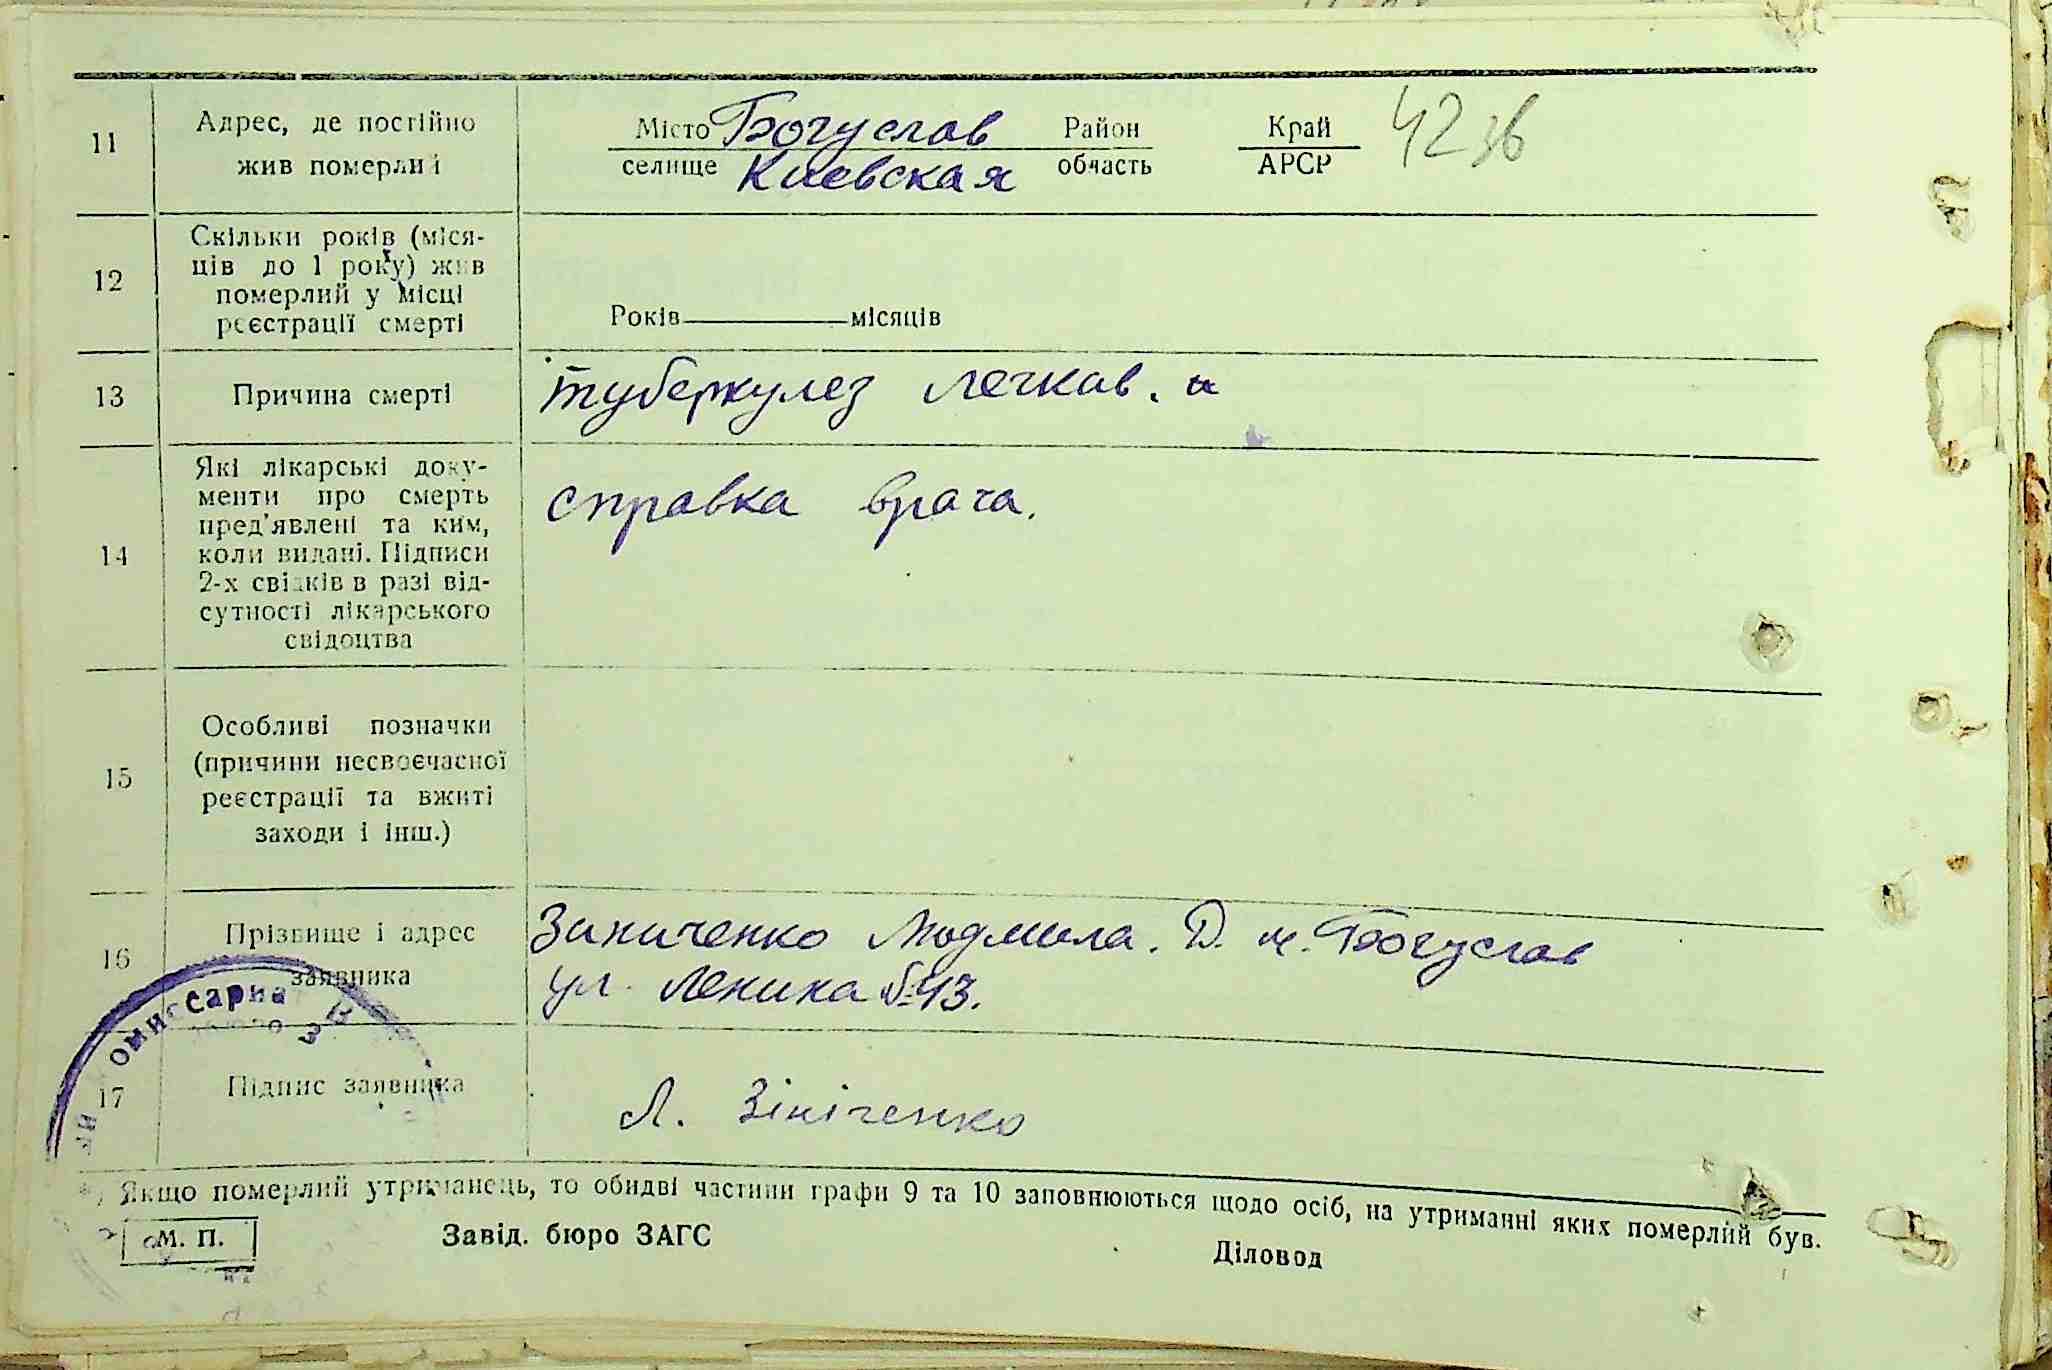 11
Адрес, де постійно
жив померлий
Місто Богуслав Район Край 42 зв
селище Киевская область АРСР
12
Скільки років (міся-
ців до 1 року) жив
померлий у місці
реєстрації смерті
Років місяців
13
Причина смерті
туберкулез легкав. и
14
Які лікарські доку-
менти про смерть
пред'явлені та ким,
коли видані. Підписи
2-х свідків в разі від-
сутності лікарського
свідоцтва
справка врача.
15
Особливі позначки
(причини несвоєчасної
реєстрації та вжиті
заходи і інш.)
16
Прізвище і адрес
заявника
Зиниченко Людмила. Д. м. Богуслав
ул. Ленина №43.
17
Підпис заявника
Л. Зініченко
*) Якщо померлий утриманець, то обидві частини графи 9 та 10 заповнюються щодо осіб, на утриманні яких померлий був.
М. П.
Завід. бюро ЗАГС
Діловод